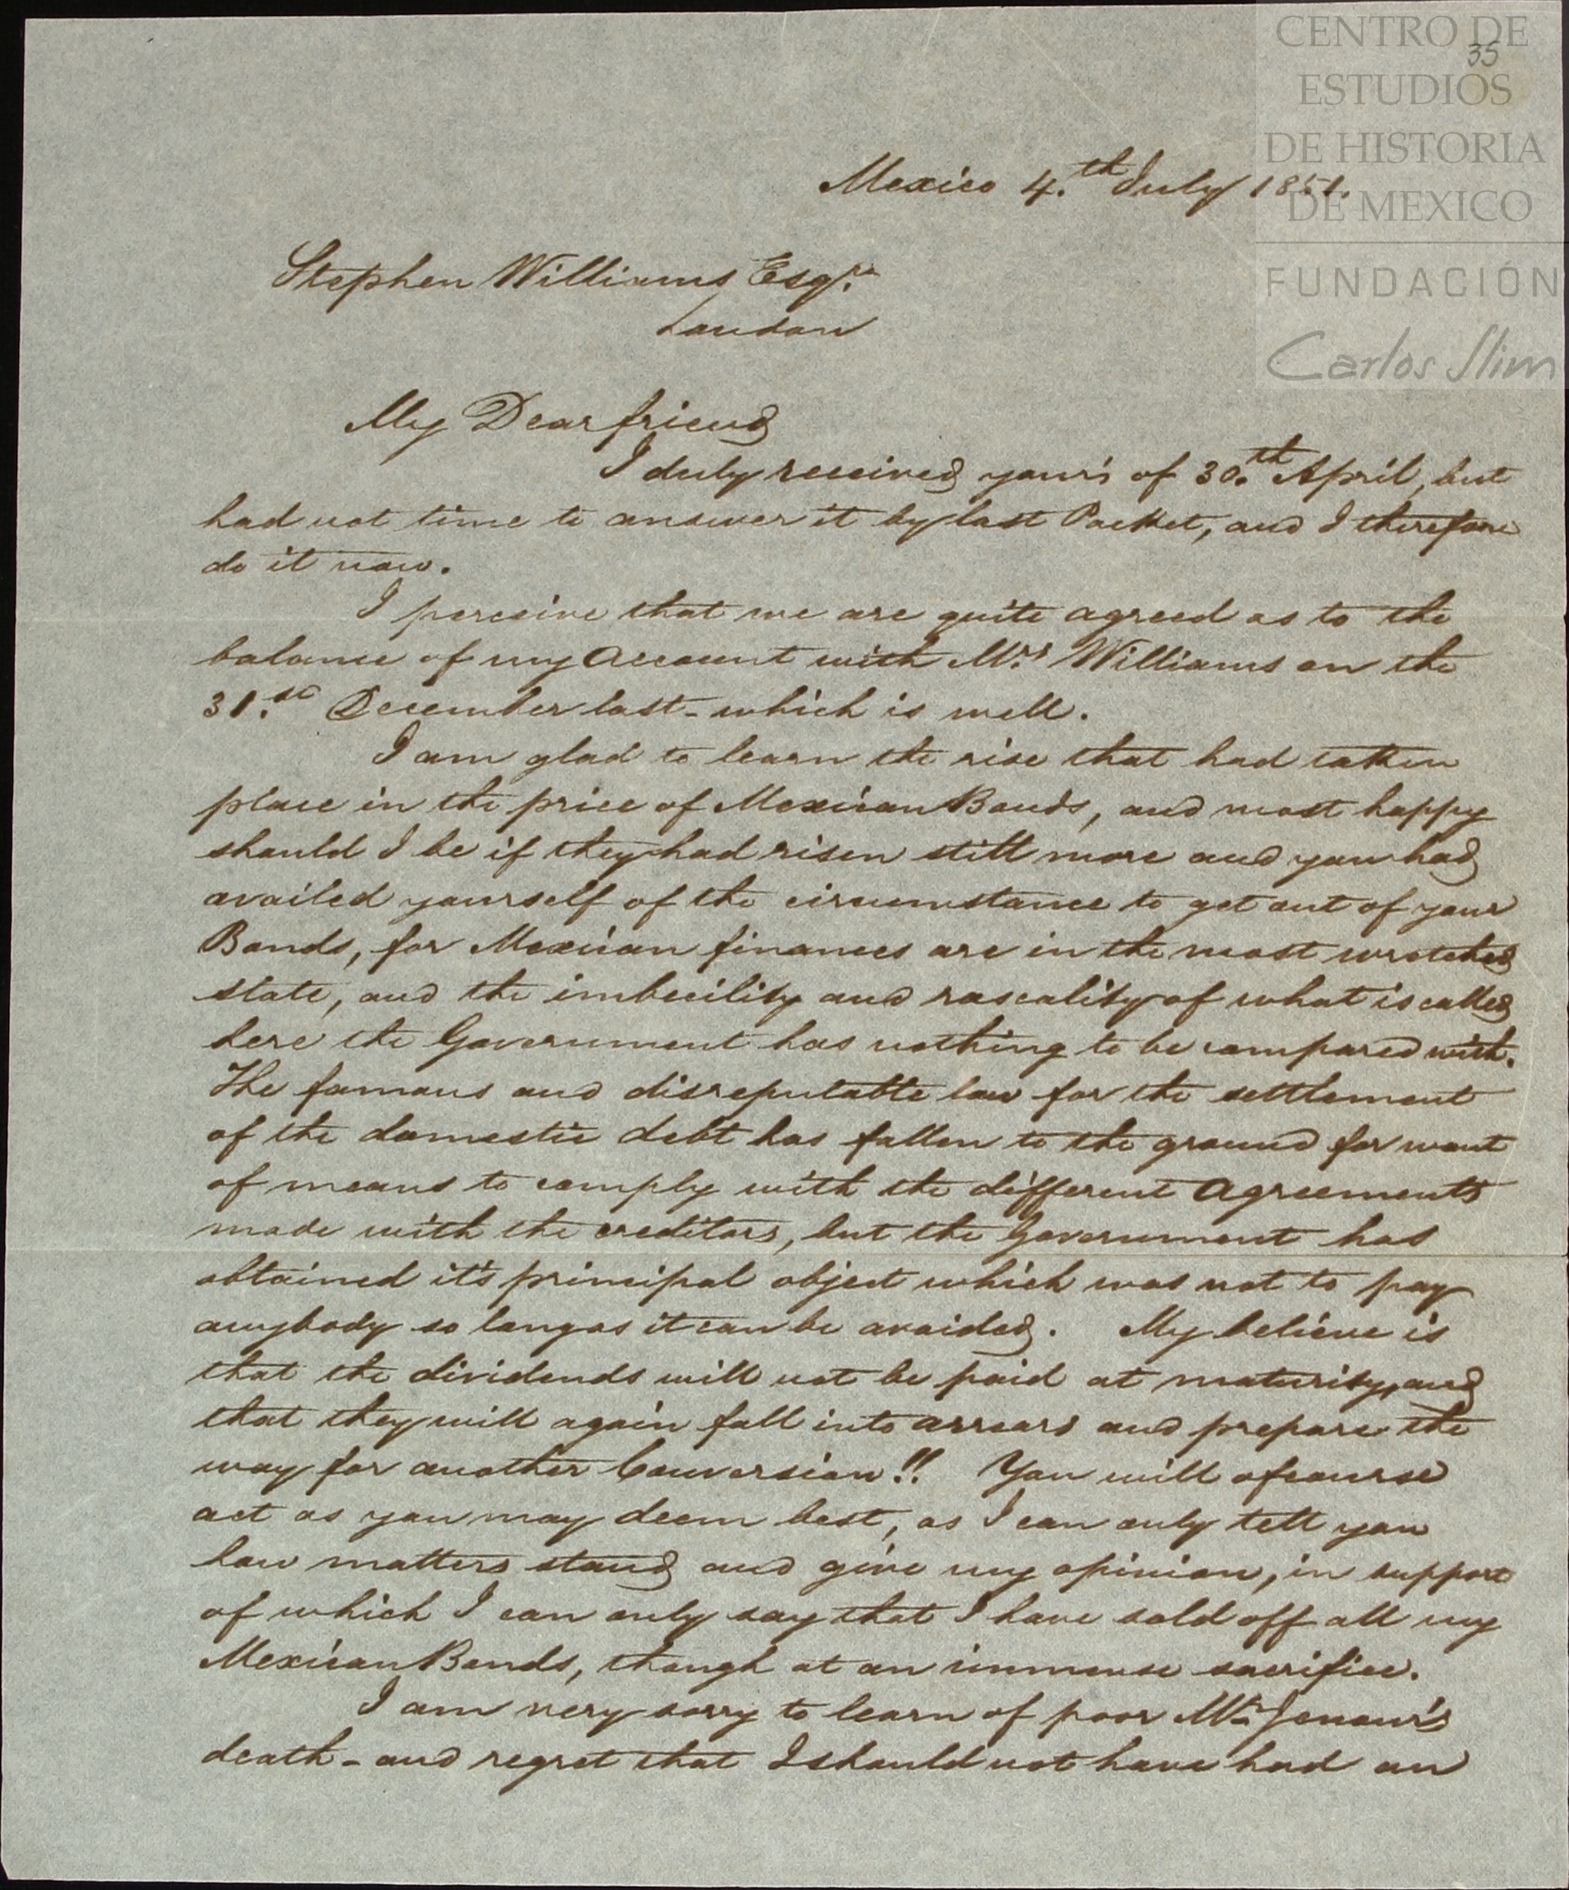 CENTRO DE
ESTUDIOS
DE HISTORIA
DE MEXICO
FUNDACIÓN
Carlos Slim
35
Mexico 4.th July 1851.
Stephen Williams Esqr.
London
My Dear friend
I duly received your's of 30.th April, but
had not time to answer it by last Packet, and I therefore
do it now.
I perceive that we are quite agreed as to the
balance of my Account with Mrs. Williams on the
31.st December last - which is well.
I am glad to learn the rise that had taken
place in the price of Mexican Bonds, and most happy
should I be if they had risen still more and you had
availed yourself of the circumstance to get out of your
Bonds, for Mexican finances are in the most wretched
state, and the imbecility and rascality of what is called
here the Government has nothing to be compared with.
The famous and disreputable law for the settlement
of the domestic debt has fallen to the ground for want
of means to comply with the different Agreements
made with the creditors, but the Government has
obtained it's principal object which was not to pay
anybody so long as it can be avoided. My believe is
that the dividends will not be paid at maturity, and
that they will again fall into arrears and prepare the
way for another Conversion!! You will of course
act as you may deem best, as I can only tell you
how matters stand and give my opinion, in support
of which I can only say that I have sold off all my
Mexican Bonds, though at an immense sacrifice.
I am very sorry to learn of poor Mr.
death - and regret that I should not have had an